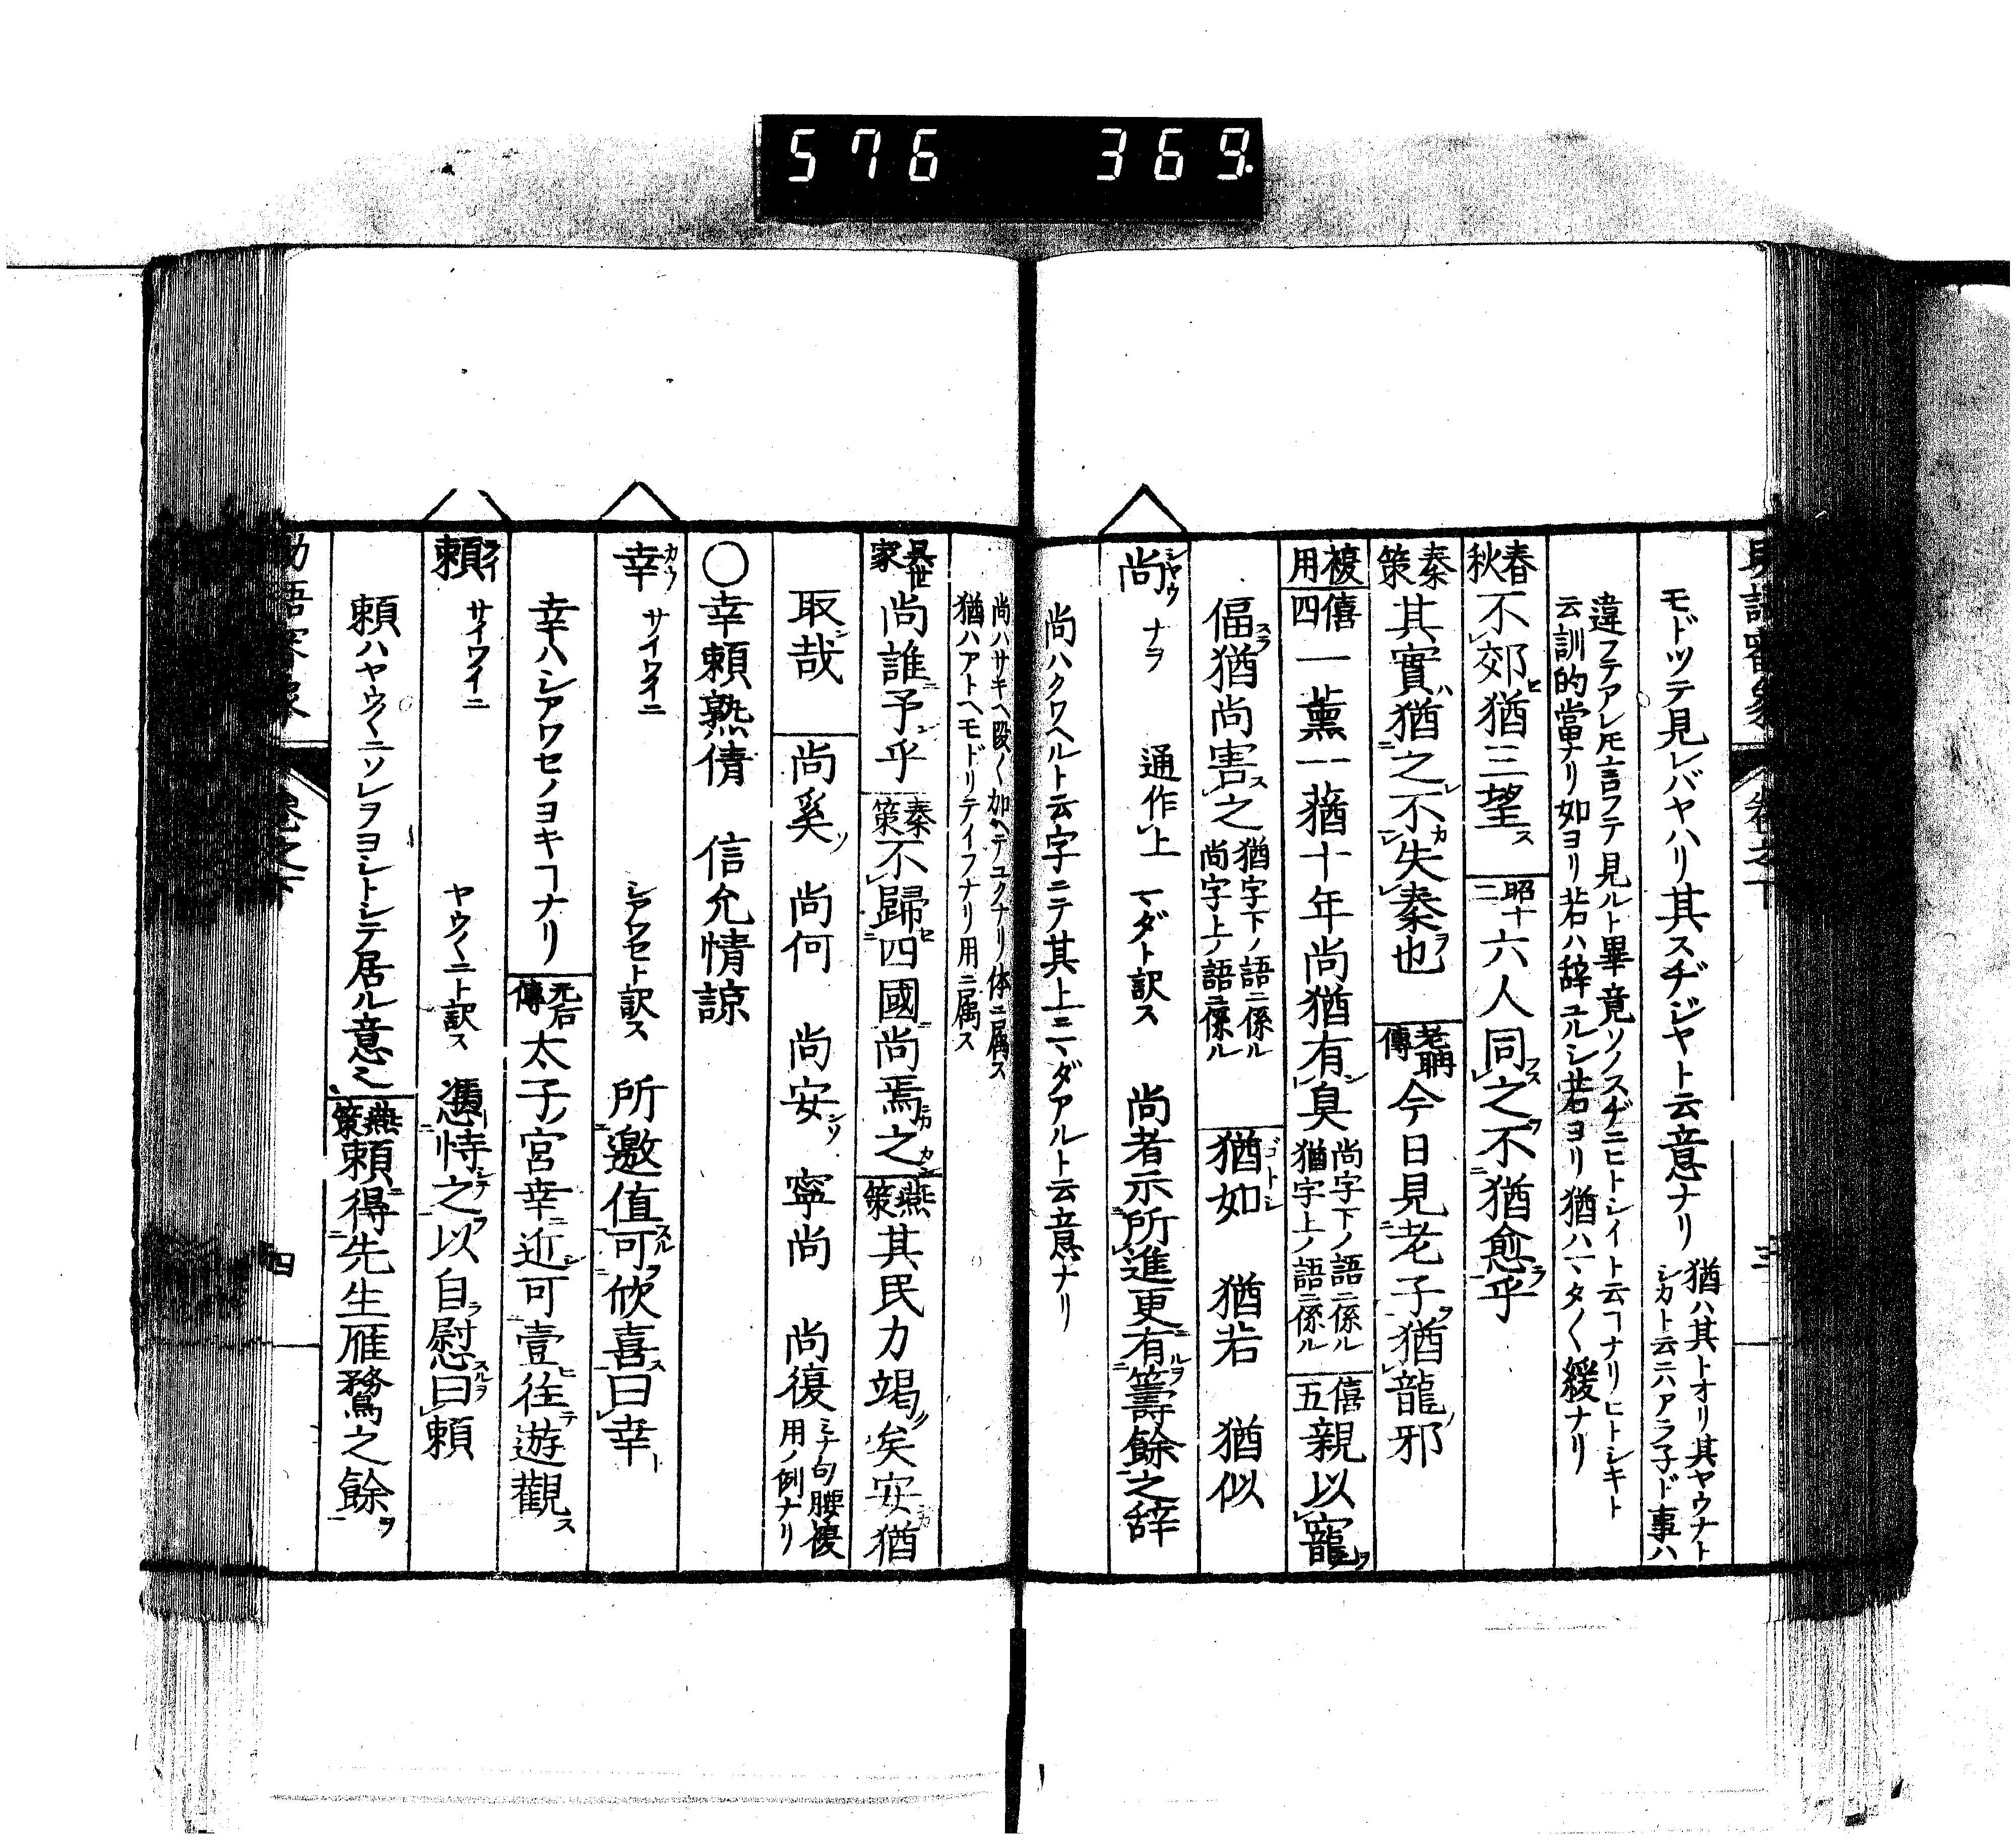 576 369.
モドツテ見レバヤハリ其スヂジヤト云意ナリ 猶ハ其トオリ其ヤウナト
シカト云ニハアラ子ド事ハ
違フテアレ𪜈言フテ見ルト畢竟ソノスヂニヒトシイト云ヿナリヒトシキト
云訓的當ナリ如ヨリ若ハ辞ユルシ若ヨリ猶ハマタ〱緩ナリ
春秋 不郊猶三望 昭十二 六人同之不猶愈乎
秦策 其實猶之不失秦也 老聃傳 今日見老子猶龍邪
複用 僖四 一薫一蕕十年尚猶有臭 尚字下ノ語ニ係ル
猶字上ノ語ニ係ル 僖五 親以寵
偪猶尚害之 猶字下ノ語ニ係ル
尚字上ノ語ニ係ル 猶如 猶若 猶似
尚 シヤウ ナヲ 通作上 マダト訳ス 尚者示所進更有籌餘之辞
尚ハクワヘルト云字ニテ其上ニマダアルト云意ナリ
尚ハサキヘ段〱加ヘテユクナリ体ニ属ス
猶ハアトヘモドリテイフナリ用ニ属ス
呉世家 尚誰予乎 秦策 不歸四國尚焉之 燕策 其民力竭矣安猶
取哉 尚奚 尚何 尚安 寧尚 尚復 ミナ句腰複
用ノ例ナリ
〇幸頼熟倩 信允情諒
幸 カウ サイワイニ シアワセト訳ス 所邀值可欣喜曰幸
幸ハシアワセノヨキヿナリ 石傳 太子宮幸近可壹往遊觀
頼 ライ サイワイニ ヤウ〱ニト訳ス 憑恃之以自慰曰頼
頼ハヤウ〱ニソレヲヨシトシテ居ル意也 燕策 頼得先生雁鶩之餘
四